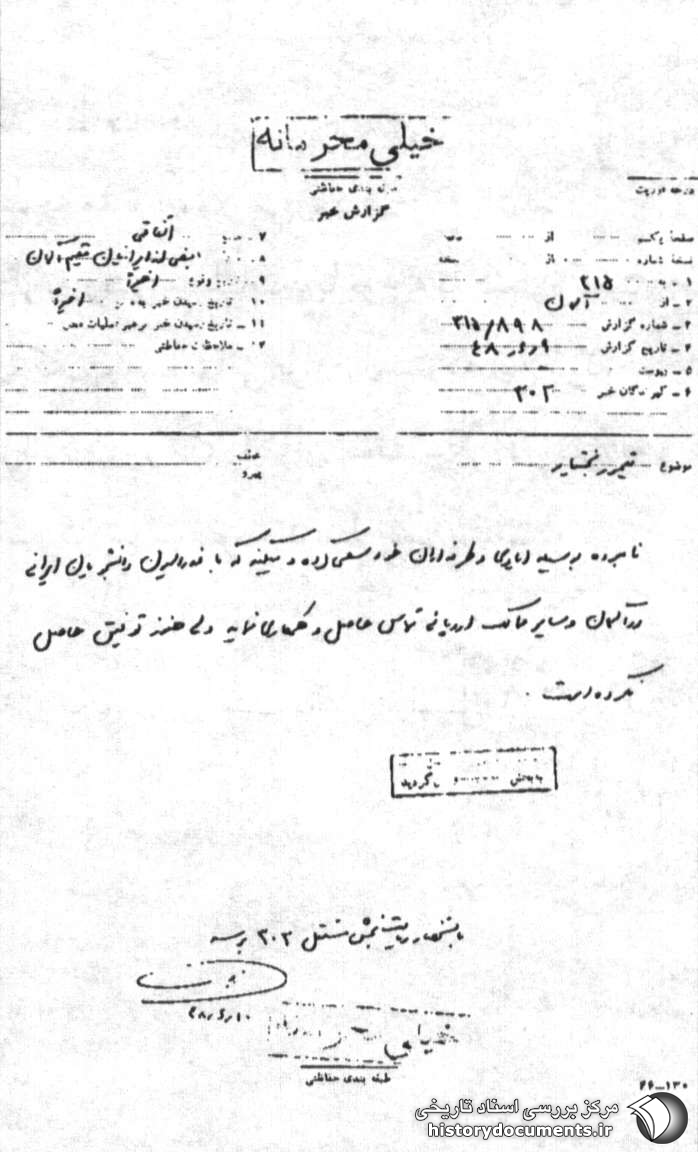 خیلی محرمانه
طبقه بندی حفاظتی
گزارش خبر
درجه فوریت
صفحهٔ یکم از
نسخهٔ شماره از نسخه
۱ - به ۳۱۵
۲ - از آلمان
۳ - شماره گزارش ۳۱۵/۸۹۸
۴ - تاریخ گزارش ۴۸/۶/۹
۵ - پیوست
۶ - گیرندگان خبر ۳۰۲
۷ - منبع اتفاقی
۸ - بعضی از ایرانیان مقیم آلمان
۹ - تاریخ وقوع اخیراً
۱۰ - تاریخ رسیدن خبر به منبع اخیراً
۱۱ - تاریخ رسیدن خبر به رهبر عملیات محل
۱۲ - ملاحظات حفاظتی
موضوع تیمور بختیار
عطف
پیرو
نامبرده بوسیله ایادی و طرفداران خود سعی کرده و میکند که با فدراسیون دانشجویان ایرانی
در آلمان و سایر ممالک اروپائی تماس حاصل و همکاری نماید ولی هنوز توفیق حاصل
نکرده است.
به بخش گردید
باستحضار ریاست بخش مستقل ۳۰۲ برسد
۴۸/۶/۱۰
خیلی
طبقه بندی حفاظتی
۲۶-۱۳۰
مرکز بررسی اسناد تاریخی
historydocuments.ir